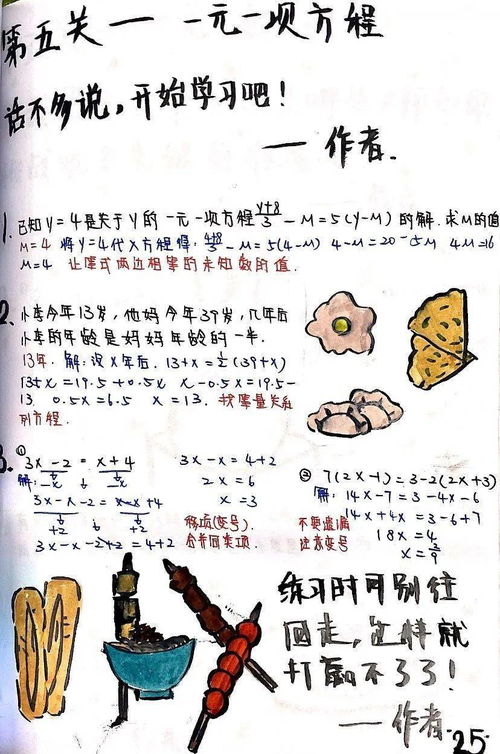 第五关 — 一元一次方程
话不多说，开始学习吧！
— 作者.
1. 已知y=4是关于y的一元一次方程(y+8)/3-M=5(y-M)的解.求M的值
M=4 将y=4代入方程得：(4+8)/3-M=5(4-M) 4-M=20-5M 4M=16
M=4 让等式两边相等的未知数的值.
2. 小李今年13岁，他妈今年39岁，几年后
小李的年龄是妈妈年龄的一半.
13年. 解：设x年后. 13+x=1/2(39+x)
13+x=19.5+0.5x x-0.5x=19.5-
13. 0.5x=6.5 x=13. 找等量关系
列方程.
3. ① 3x-2=x+4
解：-x -x
3x-x-2=x-x+4
+2 +2
3x-x-2+2=4+2
3x-x=4+2
2x=6
x=3
移项(变号).
合并同类项.
② 7(2x-1)=3-2(2x+3)
解：14x-7=3-4x-6
14x+4x=3-6+7
18x=4
x=2/9
不要遗漏
注意变号
练习时可别往
回走，这样就
打 不了了！
— 作者.
25.